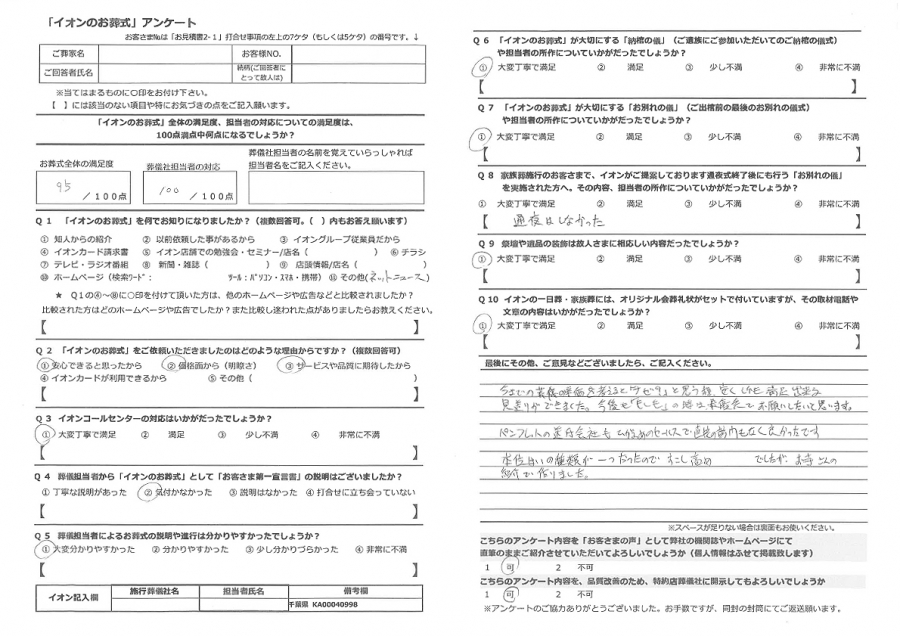 「イオンのお葬式」アンケート
お客さま№は「お見積書2-1」打合せ事項の左上の7ケタ（もしくは5ケタ）の番号です。↓
ご葬家名 お客様NO.
ご回答者氏名 続柄(ご回答者にとって故人は)
※当てはまるものに〇印をお付け下さい。
【 】には該当のない項目や特にお気づきの点をご記入願います。
「イオンのお葬式」全体の満足度、担当者の対応についての満足度は、
100点満点中何点になるでしょうか？
お葬式全体の満足度
95 /100点
葬儀社担当者の対応
100 /100点
葬儀社担当者の名前を覚えていらっしゃれば
担当者名をご記入ください。
Q1 「イオンのお葬式」を何でお知りになりましたか？（複数回答可。（ ）内もお答え願います）
① 知人からの紹介 ② 以前依頼した事があるから ③ イオングループ従業員だから
④ イオンカード請求書 ⑤ イオン店舗での勉強会・セミナー/店名（ ） ⑥ チラシ
⑦ テレビ・ラジオ番組 ⑧ 新聞・雑誌（ ） ⑨ 店頭情報/店名（ ）
⑩ ホームページ（検索ﾜｰﾄﾞ： ﾂｰﾙ：ﾊﾟｿｺﾝ・ｽﾏﾎ・携帯） ⑪ その他(ネットニュース)
★ Q1の④～⑩に〇印を付けて頂いた方は、他のホームページや広告などと比較されましたか？
比較された方はどのホームページや広告でしたか？また比較し迷われた点がありましたらお教えください。
【 】
Q2 「イオンのお葬式」をご依頼いただきましたのはどのような理由からですか？（複数回答可）
①安心できると思ったから ②価格面から（明瞭さ） ③サービスや品質に期待したから
④イオンカードが利用できるから ⑤その他（ ）
【 】
Q3 イオンコールセンターの対応はいかがだったでしょうか？
① 大変丁寧で満足 ② 満足 ③ 少し不満 ④ 非常に不満
【 】
Q4 葬儀担当者から「イオンのお葬式」として「お客さま第一宣言書」の説明はございましたか？
①丁寧な説明があった ②気付かなかった ③説明はなかった ④打合せに立ち会っていない
【 】
Q5 葬儀担当者によるお葬式の説明や進行は分かりやすかったでしょうか？
①大変分かりやすかった ②分かりやすかった ③少し分かりづらかった ④非常に不満
【 】
イオン記入欄 施行葬儀社名 担当者氏名 備考欄
千葉県 KA00040998
Q6 「イオンのお葬式」が大切にする「納棺の儀」（ご遺族にご参加いただいてのご納棺の儀式）
や担当者の所作についていかがだったでしょうか？
① 大変丁寧で満足 ② 満足 ③ 少し不満 ④ 非常に不満
【 】
Q7 「イオンのお葬式」が大切にする「お別れの儀」（ご出棺前の最後のお別れの儀式）
や担当者の所作についていかがだったでしょうか？
① 大変丁寧で満足 ② 満足 ③ 少し不満 ④ 非常に不満
【 】
Q8 家族葬施行のお客さまで、イオンがご提案しております通夜式終了後にも行う「お別れの儀」
を実施された方へ。その内容、担当者の所作についていかがだったでしょうか？
① 大変丁寧で満足 ② 満足 ③ 少し不満 ④ 非常に不満
【 通夜はしなかった 】
Q9 祭壇や遺品の装飾は故人さまに相応しい内容だったでしょうか？
① 大変丁寧で満足 ② 満足 ③ 少し不満 ④ 非常に不満
【 】
Q10 イオンの一日葬・家族葬には、オリジナル会葬礼状がセットで付いていますが、その取材電話や
文章の内容はいかがだったでしょうか？
① 大変丁寧で満足 ② 満足 ③ 少し不満 ④ 非常に不満
【 】
最後にその他、ご意見などございましたら、ご記入ください。
今までの葬儀の 考えると と思う程、安く しかも
見送りができました。今後も「もしも」の時は お願いしたいと思います。
パンフレットの 会社も のセールスで 案内もなく良かったです
の種類が一つだったので すこし高め でしたが お寺さんの
で作りました。
※スペースが足りない場合は裏面もお使いください。
こちらのアンケート内容を「お客さまの声」として弊社の機関誌やホームページにて
直筆のままご紹介させていただいてよろしいでしょうか（個人情報はふせて掲載致します）
1 可 2 不可
こちらのアンケート内容を、品質改善のため、特約店葬儀社に開示してもよろしいでしょうか
1 可 2 不可
※アンケートのご協力ありがとうございました。お手数ですが、同封の封筒にてご返送願います。